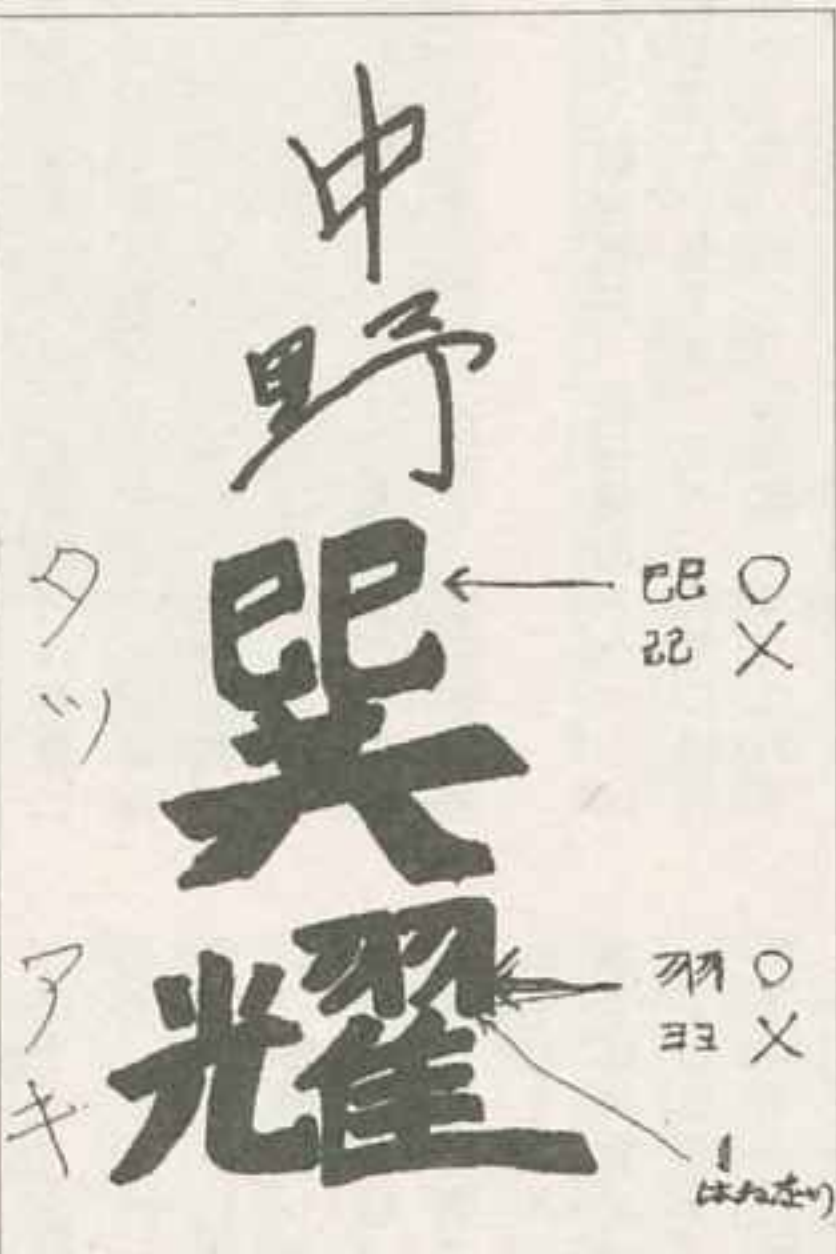 中野
巽
耀
タツ
アキ
巳巳 ○
己己 ×
羽 ○
ヨヨ ×
はねない